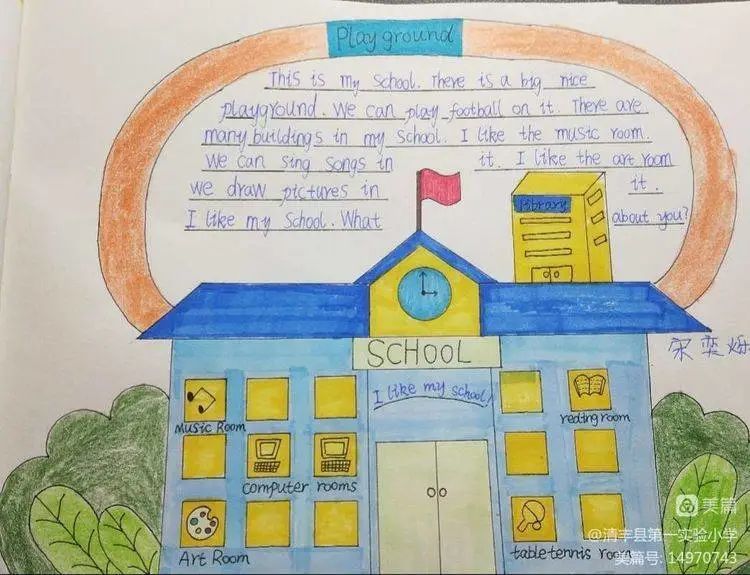 Playground
This is my school. There is a big nice
playground. We can play football on it. There are
many buildings in my school. I like the music room.
We can sing songs in it. I like the art room
we draw pictures in it.
I like my school. What about you?
Library
SCHOOL
I like my school!
宋奕烁
Music Room
reding room
computer rooms
Art Room
table tennis room
美篇
@清丰县第一实验小学
美篇号: 14970743